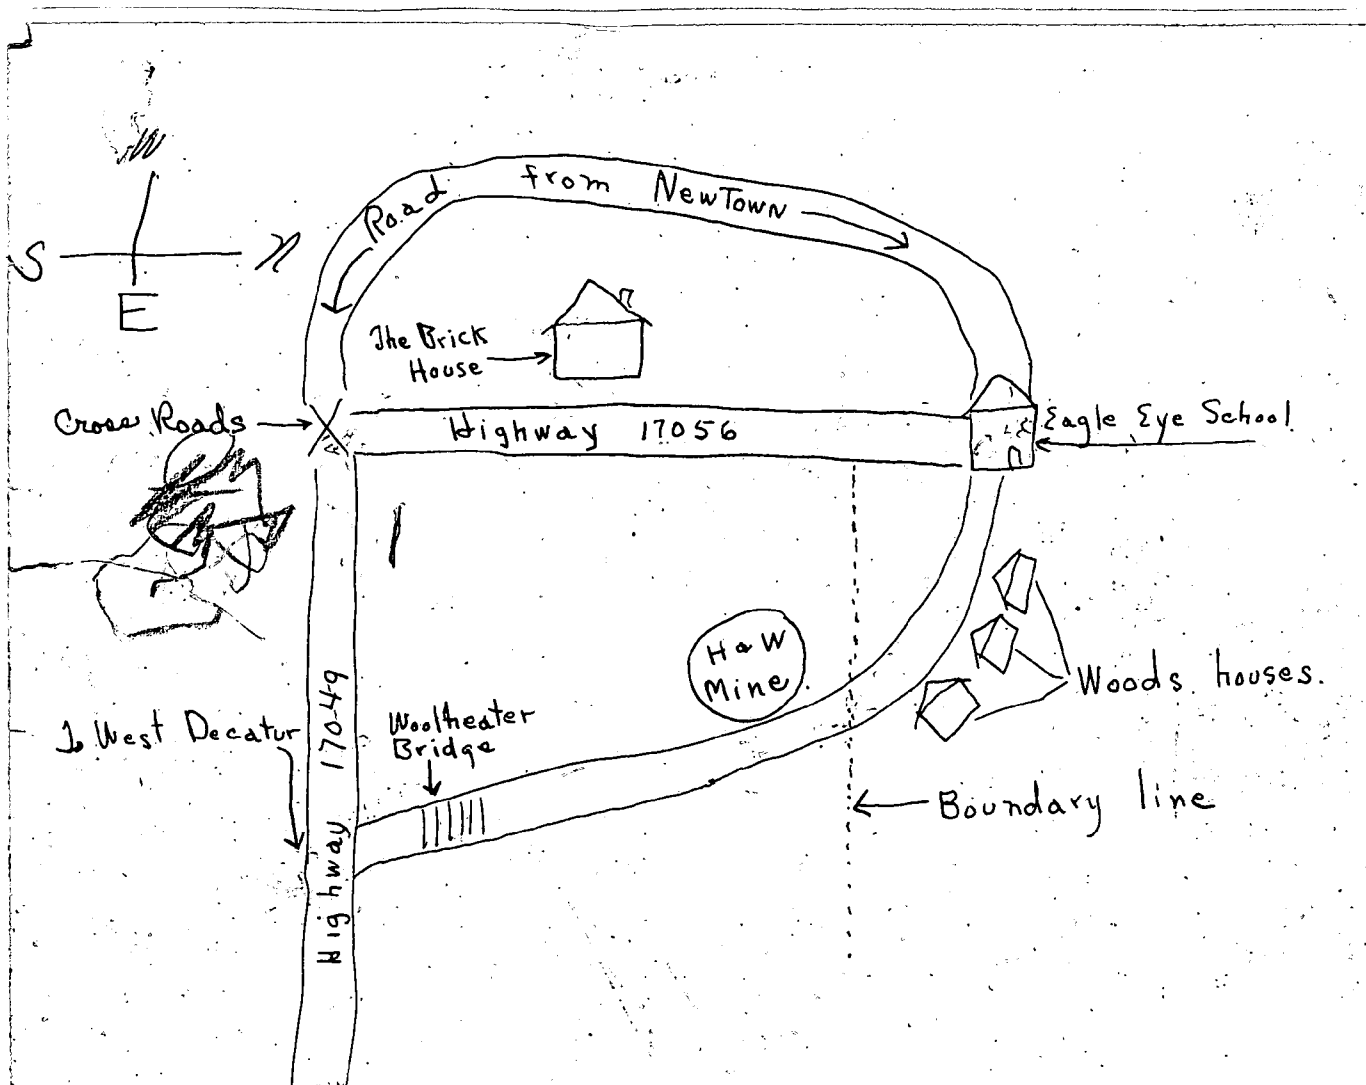 W
S N
E
Road from NewTown
The Brick
House
Cross Roads
Highway 17056
Eagle Eye School
H & W
Mine
Woods houses.
To West Decatur
Highway 17049
Wooltheater
Bridge
Boundary line